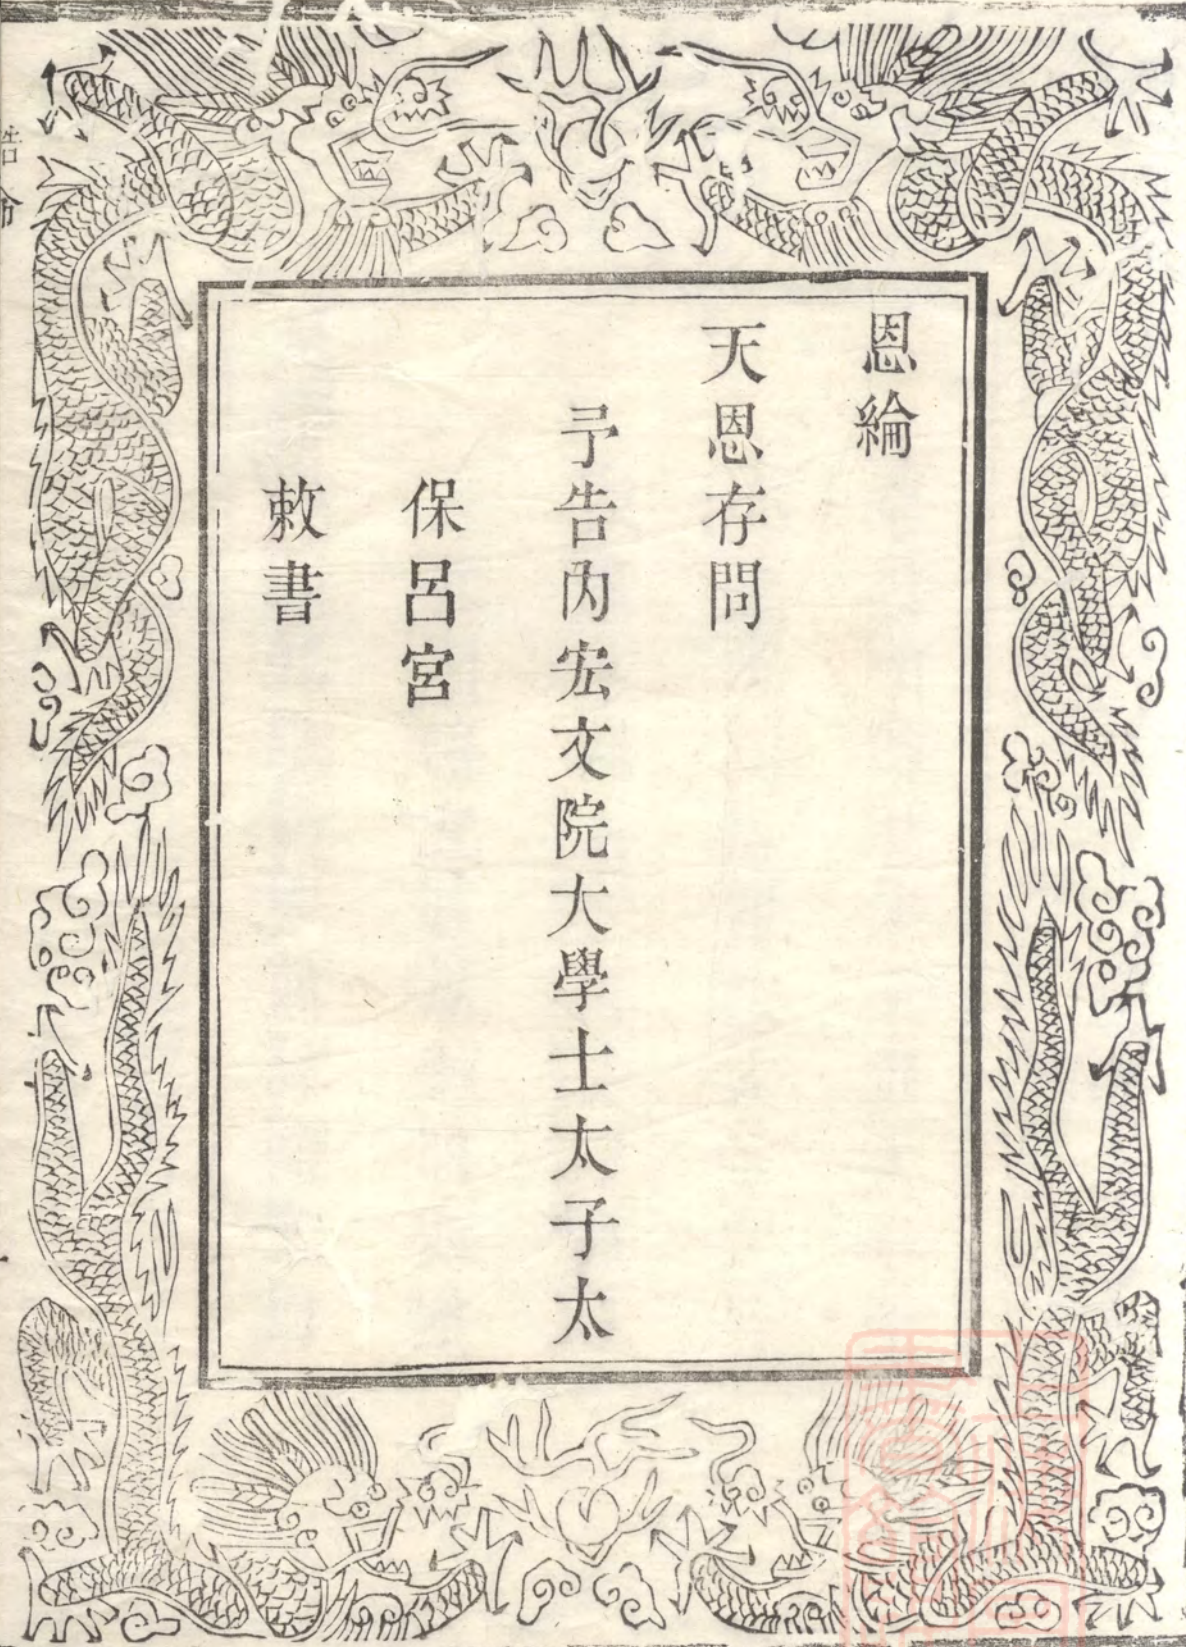 恩綸
天恩存問
予告內宏文院大學士太子太
保呂宮
敕書
誥命